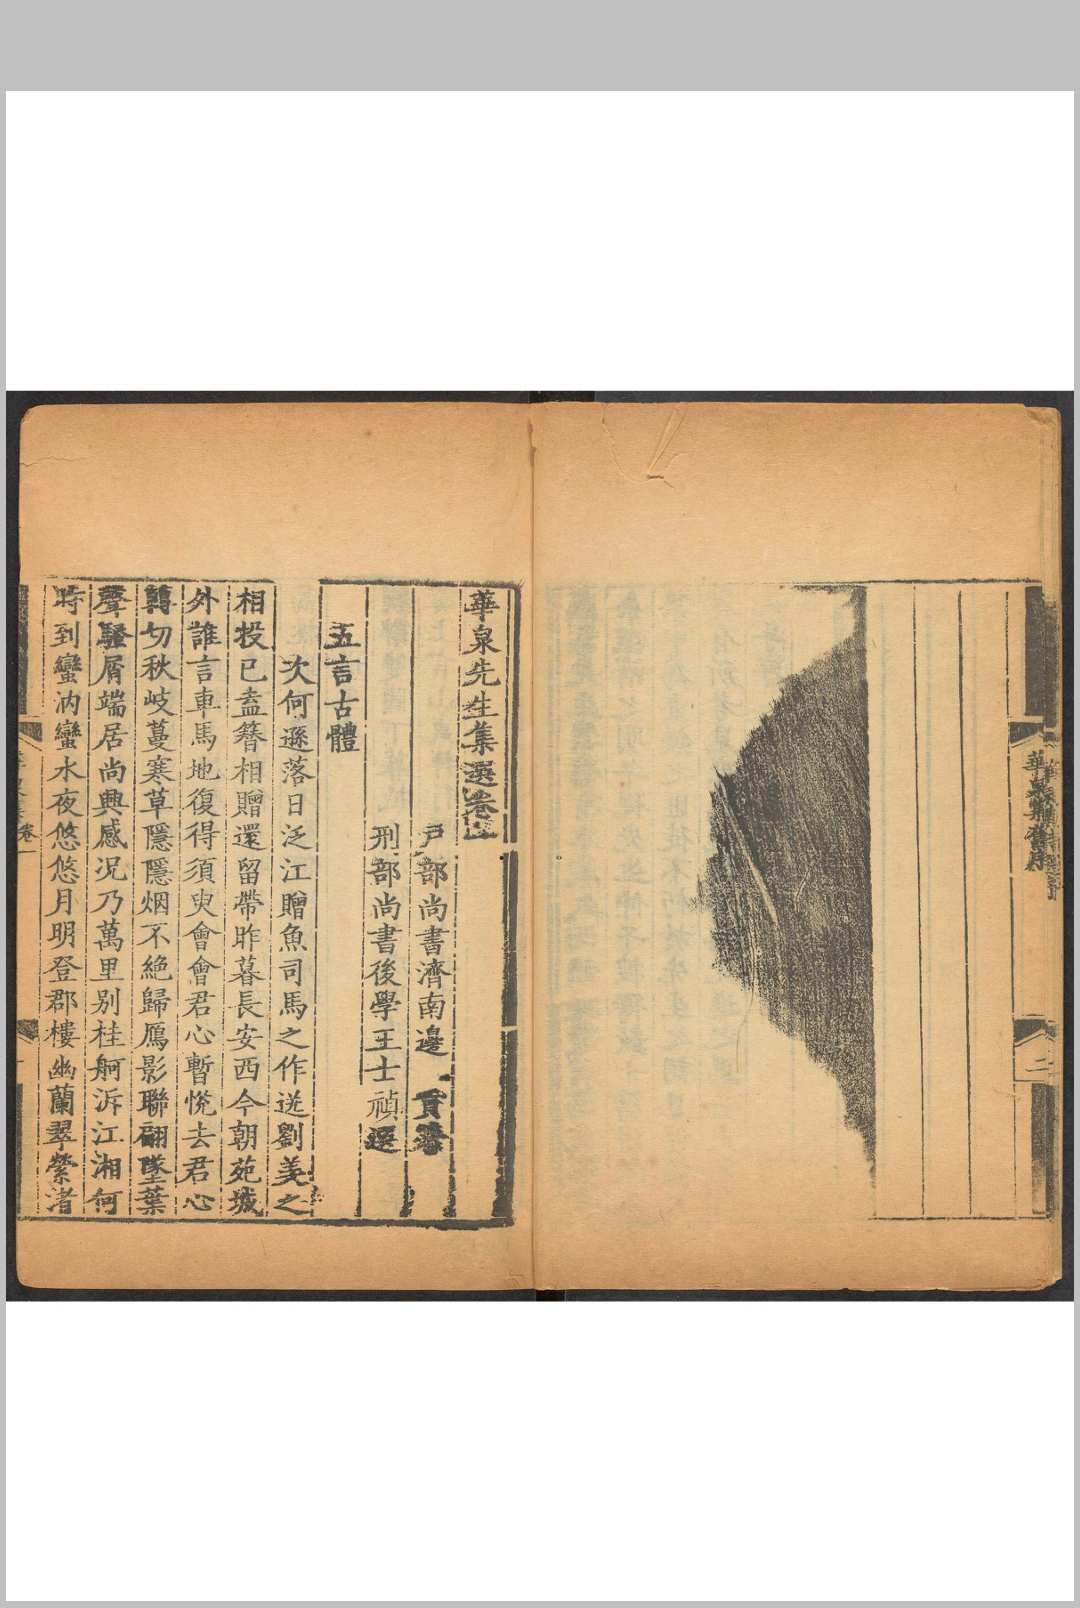 華泉集舊序
二
華泉先生集選卷一
戶部尚書濟南邊 貢著
刑部尚書後學王士禎選
五言古體
次何遜落日泛江贈魚司馬之作送劉美之
相投已蓋簪相贈還留帶昨暮長安西今朝苑城
外誰言車馬地復得須臾會會君心暫悅去君心
轉切秋岐蔓寒草隱隱烟不絶歸鴈影聯翩墜葉
聲騷屑端居尚興感况乃萬里别桂舸泝江湘何
時到蠻汭蠻水夜悠悠月明登郡樓幽蘭翠縈渚
卷一